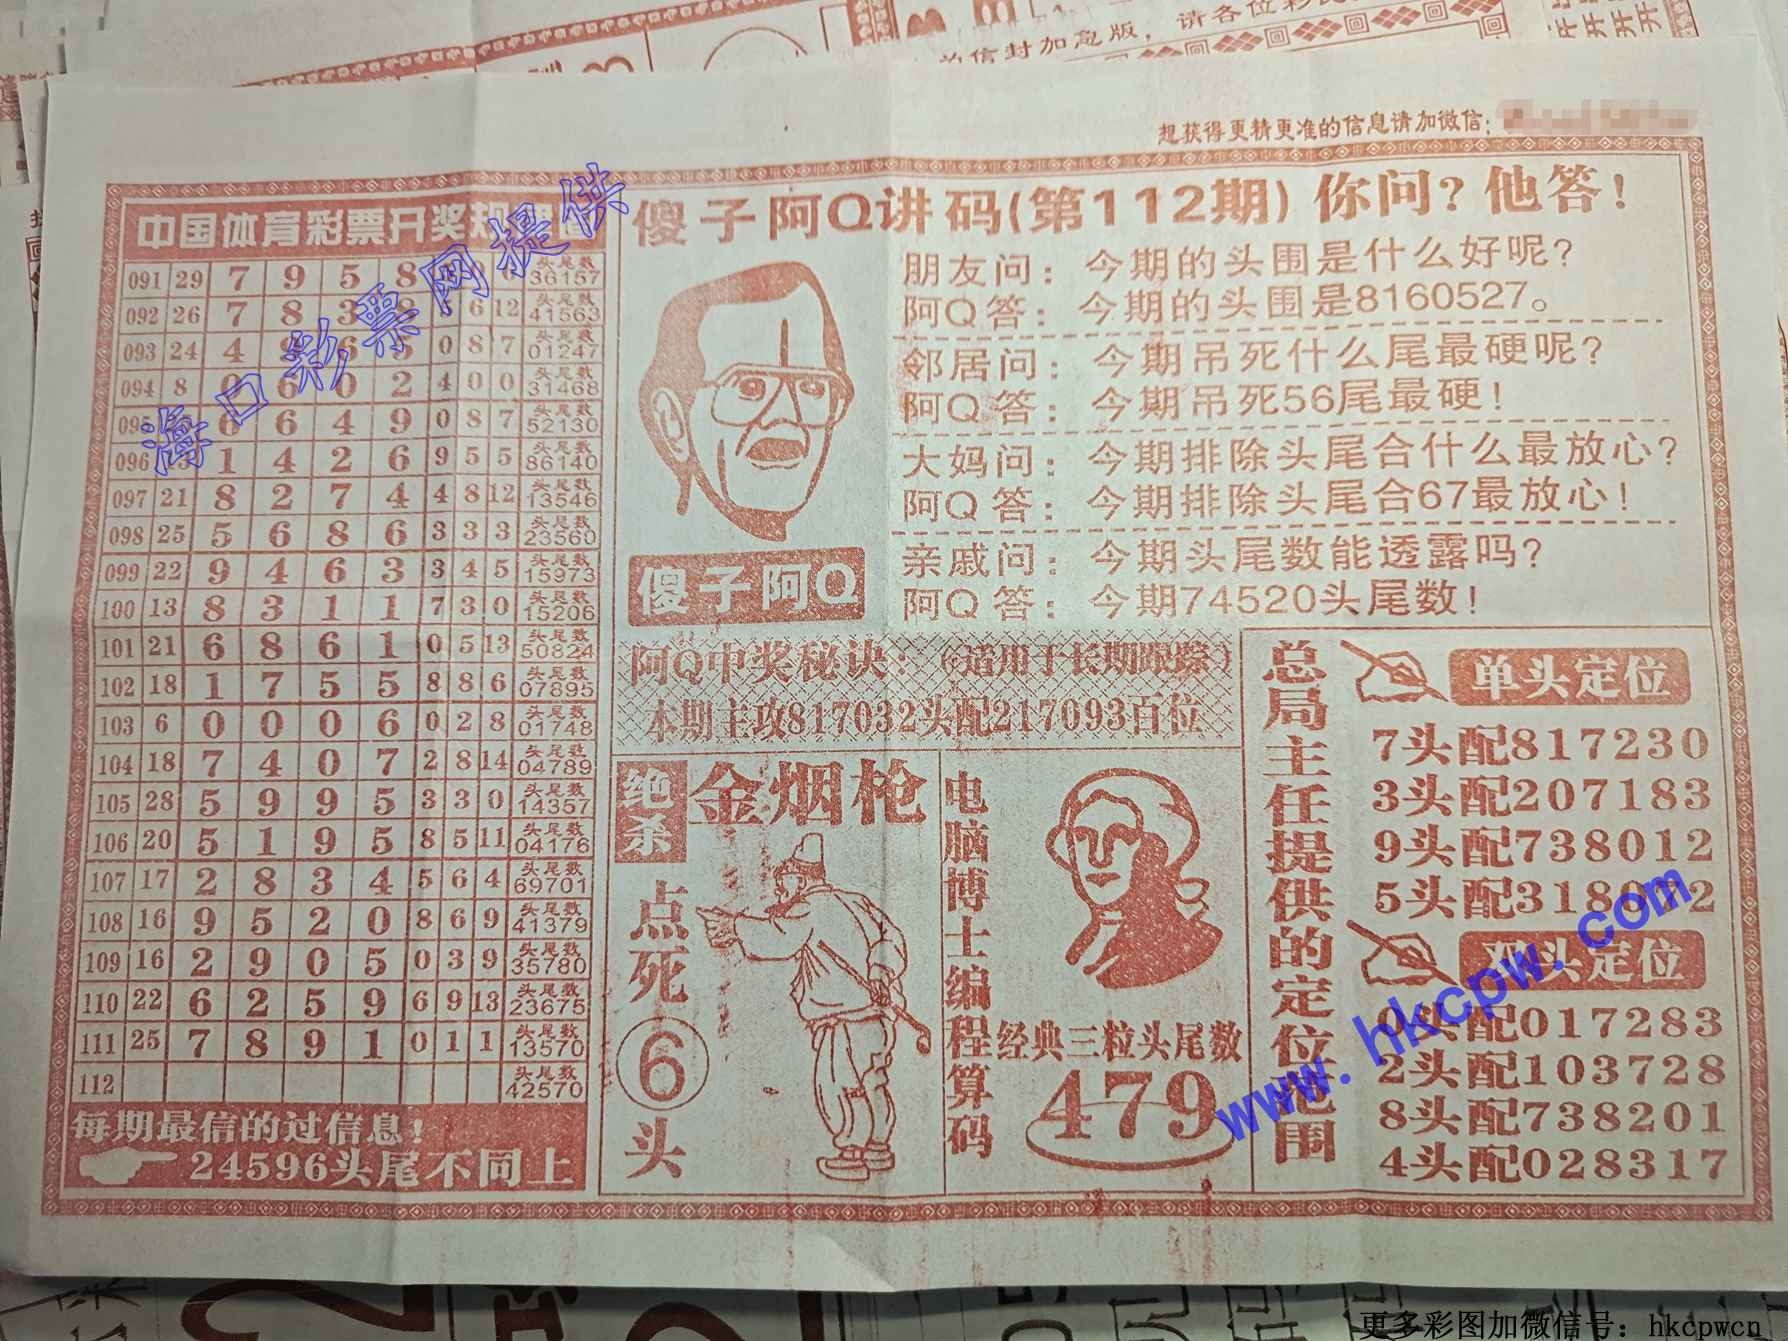 想获得更精更准的信息请加微信:
中国体育彩票开奖规
傻子阿Q讲码(第112期)你问?他答!
091 29 7 9 5 8 头尾数 36157
092 26 7 8 3 8 6 12 头尾数 41563
093 24 4 9 6 5 0 8 7 头尾数 01247
094 8 0 6 0 2 4 0 0 头尾数 31468
095 6 6 4 9 0 8 7 头尾数 52130
096 13 1 4 2 6 9 5 5 头尾数 86140
097 21 8 2 7 4 4 8 12 头尾数 13546
098 25 5 6 8 6 3 3 3 头尾数 23560
099 22 9 4 6 3 3 4 5 头尾数 15973
100 13 8 3 1 1 7 3 0 头尾数 15206
101 21 6 8 6 1 0 5 13 头尾数 50824
102 18 1 7 5 5 8 8 6 头尾数 07895
103 6 0 0 0 6 0 2 8 头尾数 01748
104 18 7 4 0 7 2 8 14 头尾数 04789
105 28 5 9 9 5 3 3 0 头尾数 14357
106 20 5 1 9 5 8 5 11 头尾数 04176
107 17 2 8 3 4 5 6 4 头尾数 69701
108 16 9 5 2 0 8 6 9 头尾数 41379
109 16 2 9 0 5 0 3 9 头尾数 35780
110 22 6 2 5 9 6 9 13 头尾数 23675
111 25 7 8 9 1 0 1 1 头尾数 13570
112 头尾数 42570
每期最信的过信息!
24596头尾不同上
傻子阿Q
朋友问:今期的头围是什么好呢?
阿Q答:今期的头围是8160527。
邻居问:今期吊死什么尾最硬呢?
阿Q答:今期吊死56尾最硬!
大妈问:今期排除头尾合什么最放心?
阿Q答:今期排除头尾合67最放心!
亲戚问:今期头尾数能透露吗?
阿Q答:今期74520头尾数!
阿Q中奖秘诀:(适用于长期跟踪)
本期主攻817032头配217093百位
绝杀
金烟枪
点死
6
头
电脑博士编程算码
经典三粒头尾数
479
总局主任提供的定位范围
单头定位
7头配817230
3头配207183
9头配738012
5头配318072
双头定位
0头配017283
2头配103728
8头配738201
4头配028317
海口彩票网提供
www.hkcpw.com
更多彩图加微信号:hkcpwcn